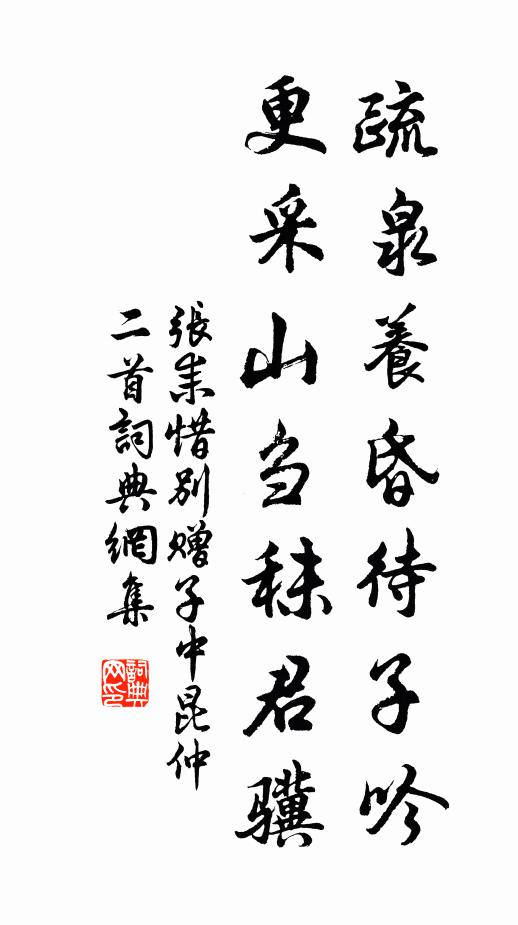 疏泉養昏待子吟
更采山刍秣君驥
張耒惜別贈子中昆仲
二首詞典網集
詞典网印